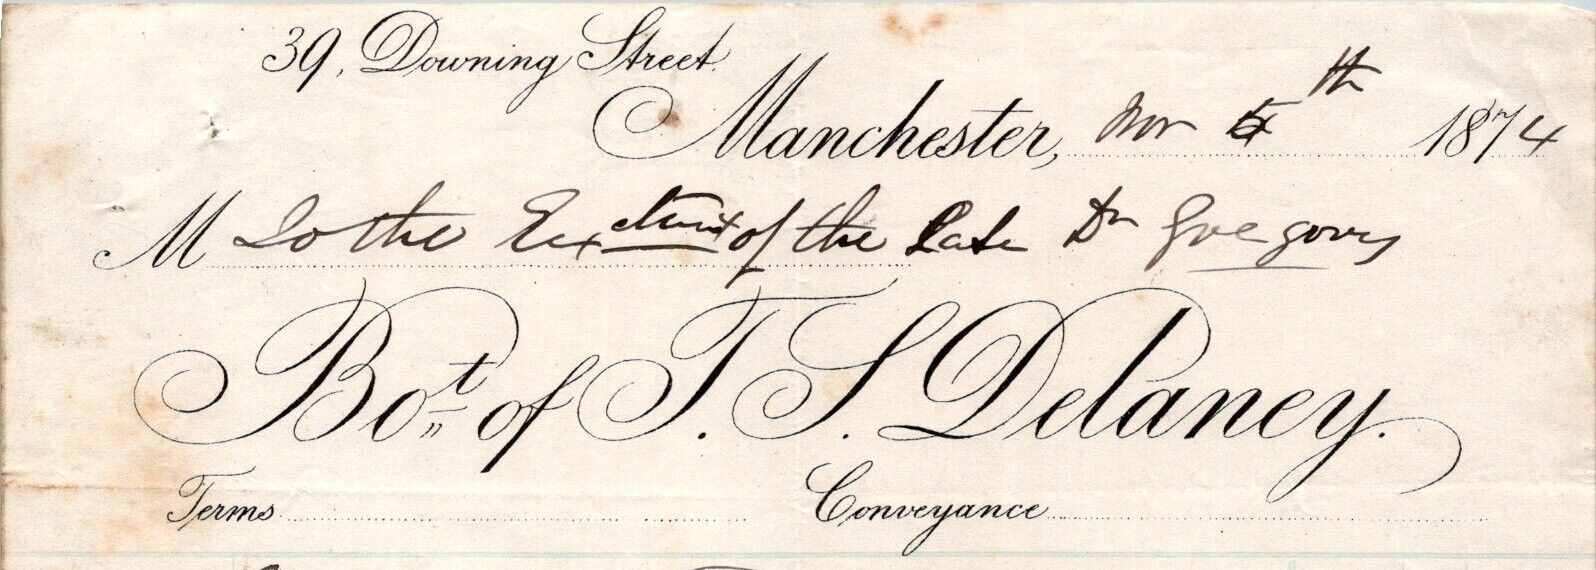 39, Downing Street.
Manchester, Nov 5th 1874
M To the Exctrix of the Late Dr Gregory
Bot. of T. S. Delaney.
Terms Conveyance